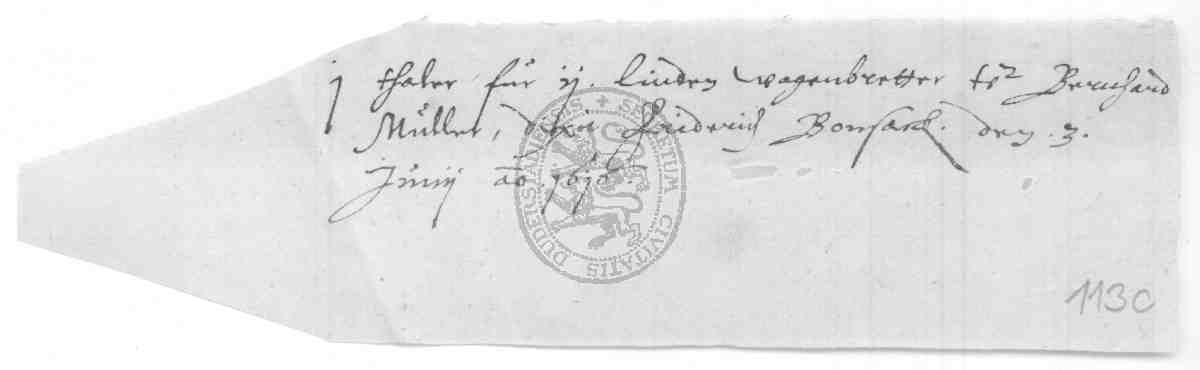 j thaler für ij. linden wagenbretter Bernhard
Müller, Friderich Bonsack. den. 3.
Junij ao
SECRETUM CIVITATIS DUDERSTADENSIS
113c